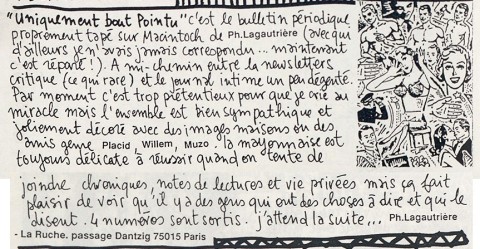 "Uniquement bout Pointu" c'est le bulletin périodique
proprement tapé sur Macintosh de Ph.Lagautrière (avec qui
d'ailleurs je n'avais jamais correspondu... maintenant
c'est réparé!). A mi-chemin entre la newsletters
critique (ce qui rare) et le journal intime un peu déjenté.
Par moment c'est trop prétentieux pour que je crie au
miracle mais l'ensemble est bien sympathique et
joliement décoré avec des images maisons ou des
amis genre Placid, Willem, Muzo. la mayonnaise est
toujours délicate à réussir quand on tente de
joindre chroniques, notes de lectures et vie privées mais ça fait
plaisir de voir qu'il y a des gens qui ont des choses à dire et qui le
disent. 4 numéros sont sortis. j'attend la suite... Ph.Lagautrière
- La Ruche. passage Dantzig 75015 Paris